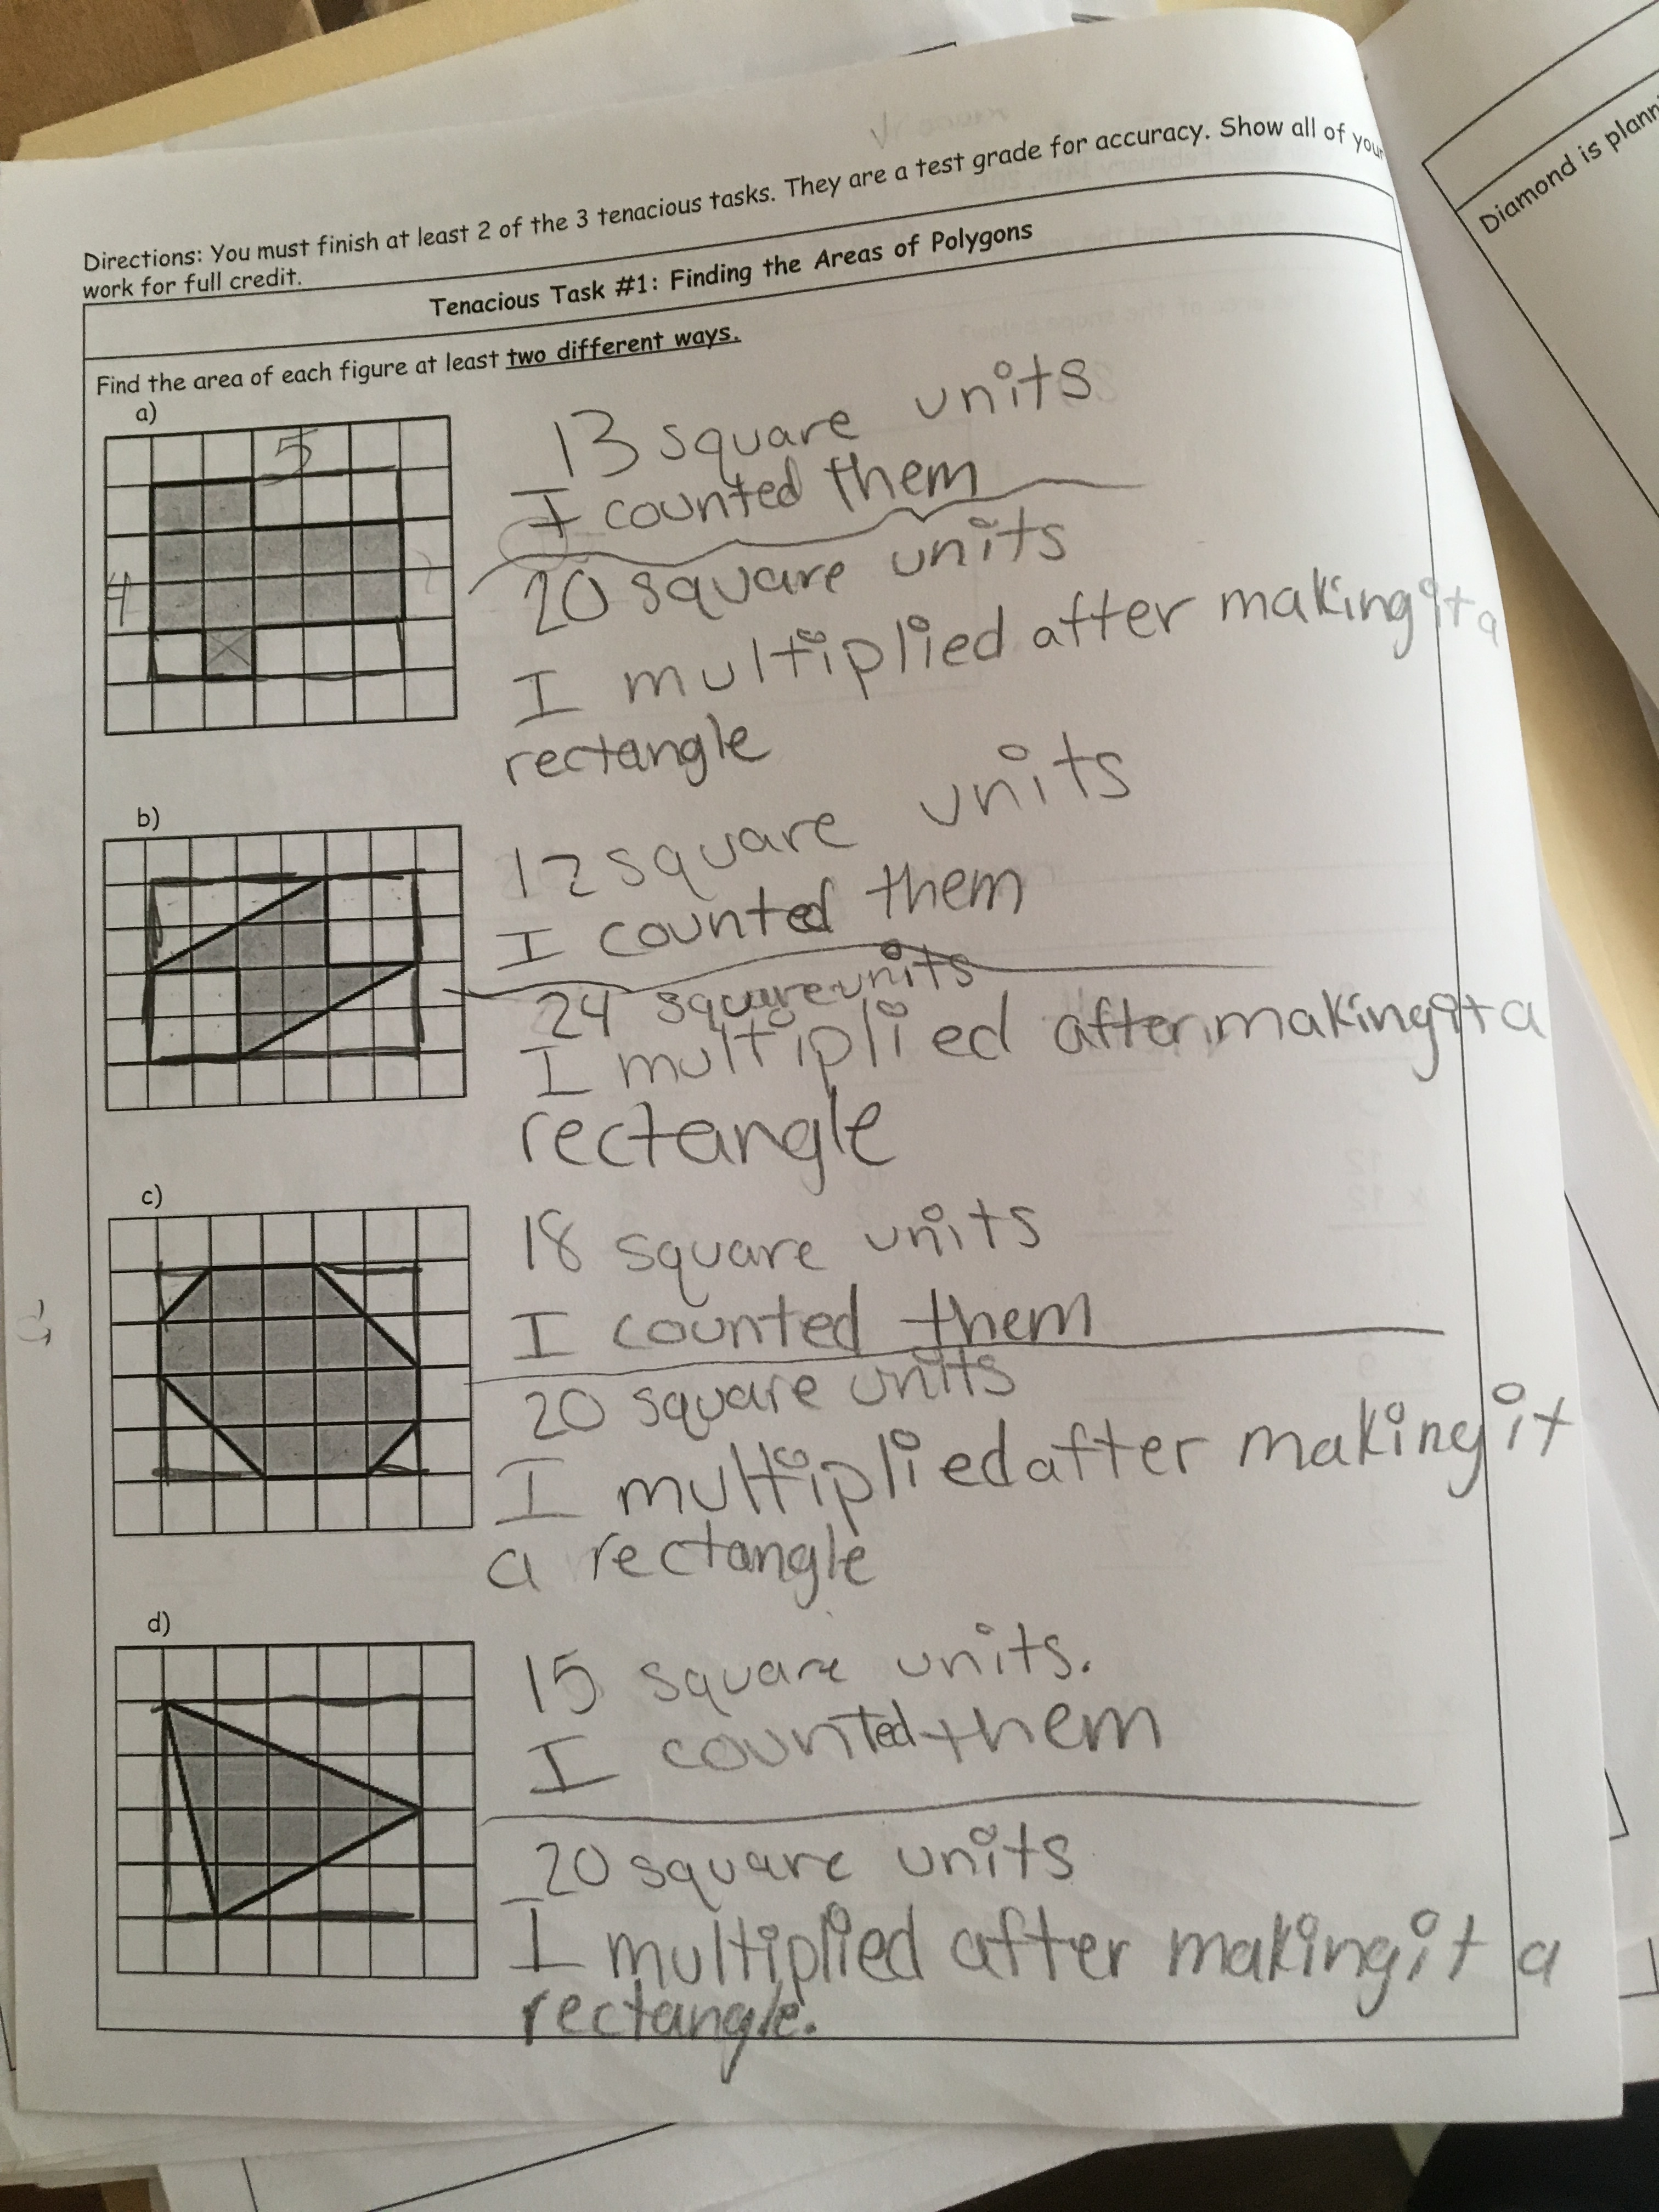 Directions: You must finish at least 2 of the 3 tenacious tasks. They are a test grade for accuracy. Show all of your
work for full credit.
Tenacious Task #1: Finding the Areas of Polygons
Find the area of each figure at least two different ways.
a)
5
4
13 square units
I counted them
20 square units
I multiplied after making it a
rectangle
b)
12 square units
I counted them
24 square units
I multiplied after making it a
rectangle
c)
18 square units
I counted them
20 square units
I multiplied after making it
a rectangle
d)
15 square units.
I counted them
20 square units
I multiplied after making it a
rectangle.
Diamond is